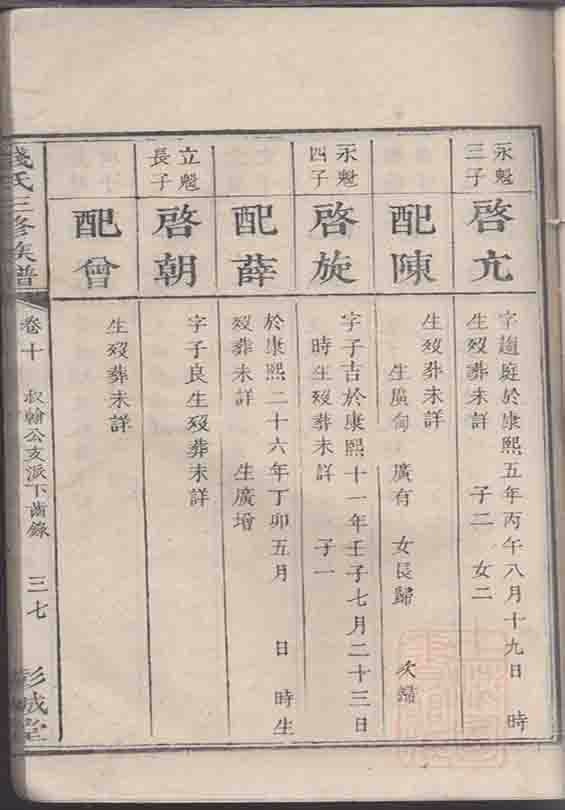 永魁
三子
啓亢
字趨庭於康熙五年丙午八月十九日 時
生歿葬未詳 子二 女二
配陳
生歿葬未詳
生廣甸 廣有 女長歸 次歸
永魁
四子
啓旋
字子吉於康熙十一年壬子七月二十三日
時生歿葬未詳 子一
配薛
於康熙二十六年丁卯五月 日 時生
歿葬未詳 生廣增
立魁
長子
啓朝
字子良生歿葬未詳
配曾
生歿葬未詳
錢氏三修族譜
卷十 叔翰公支派下齒錄 三七 彭城堂